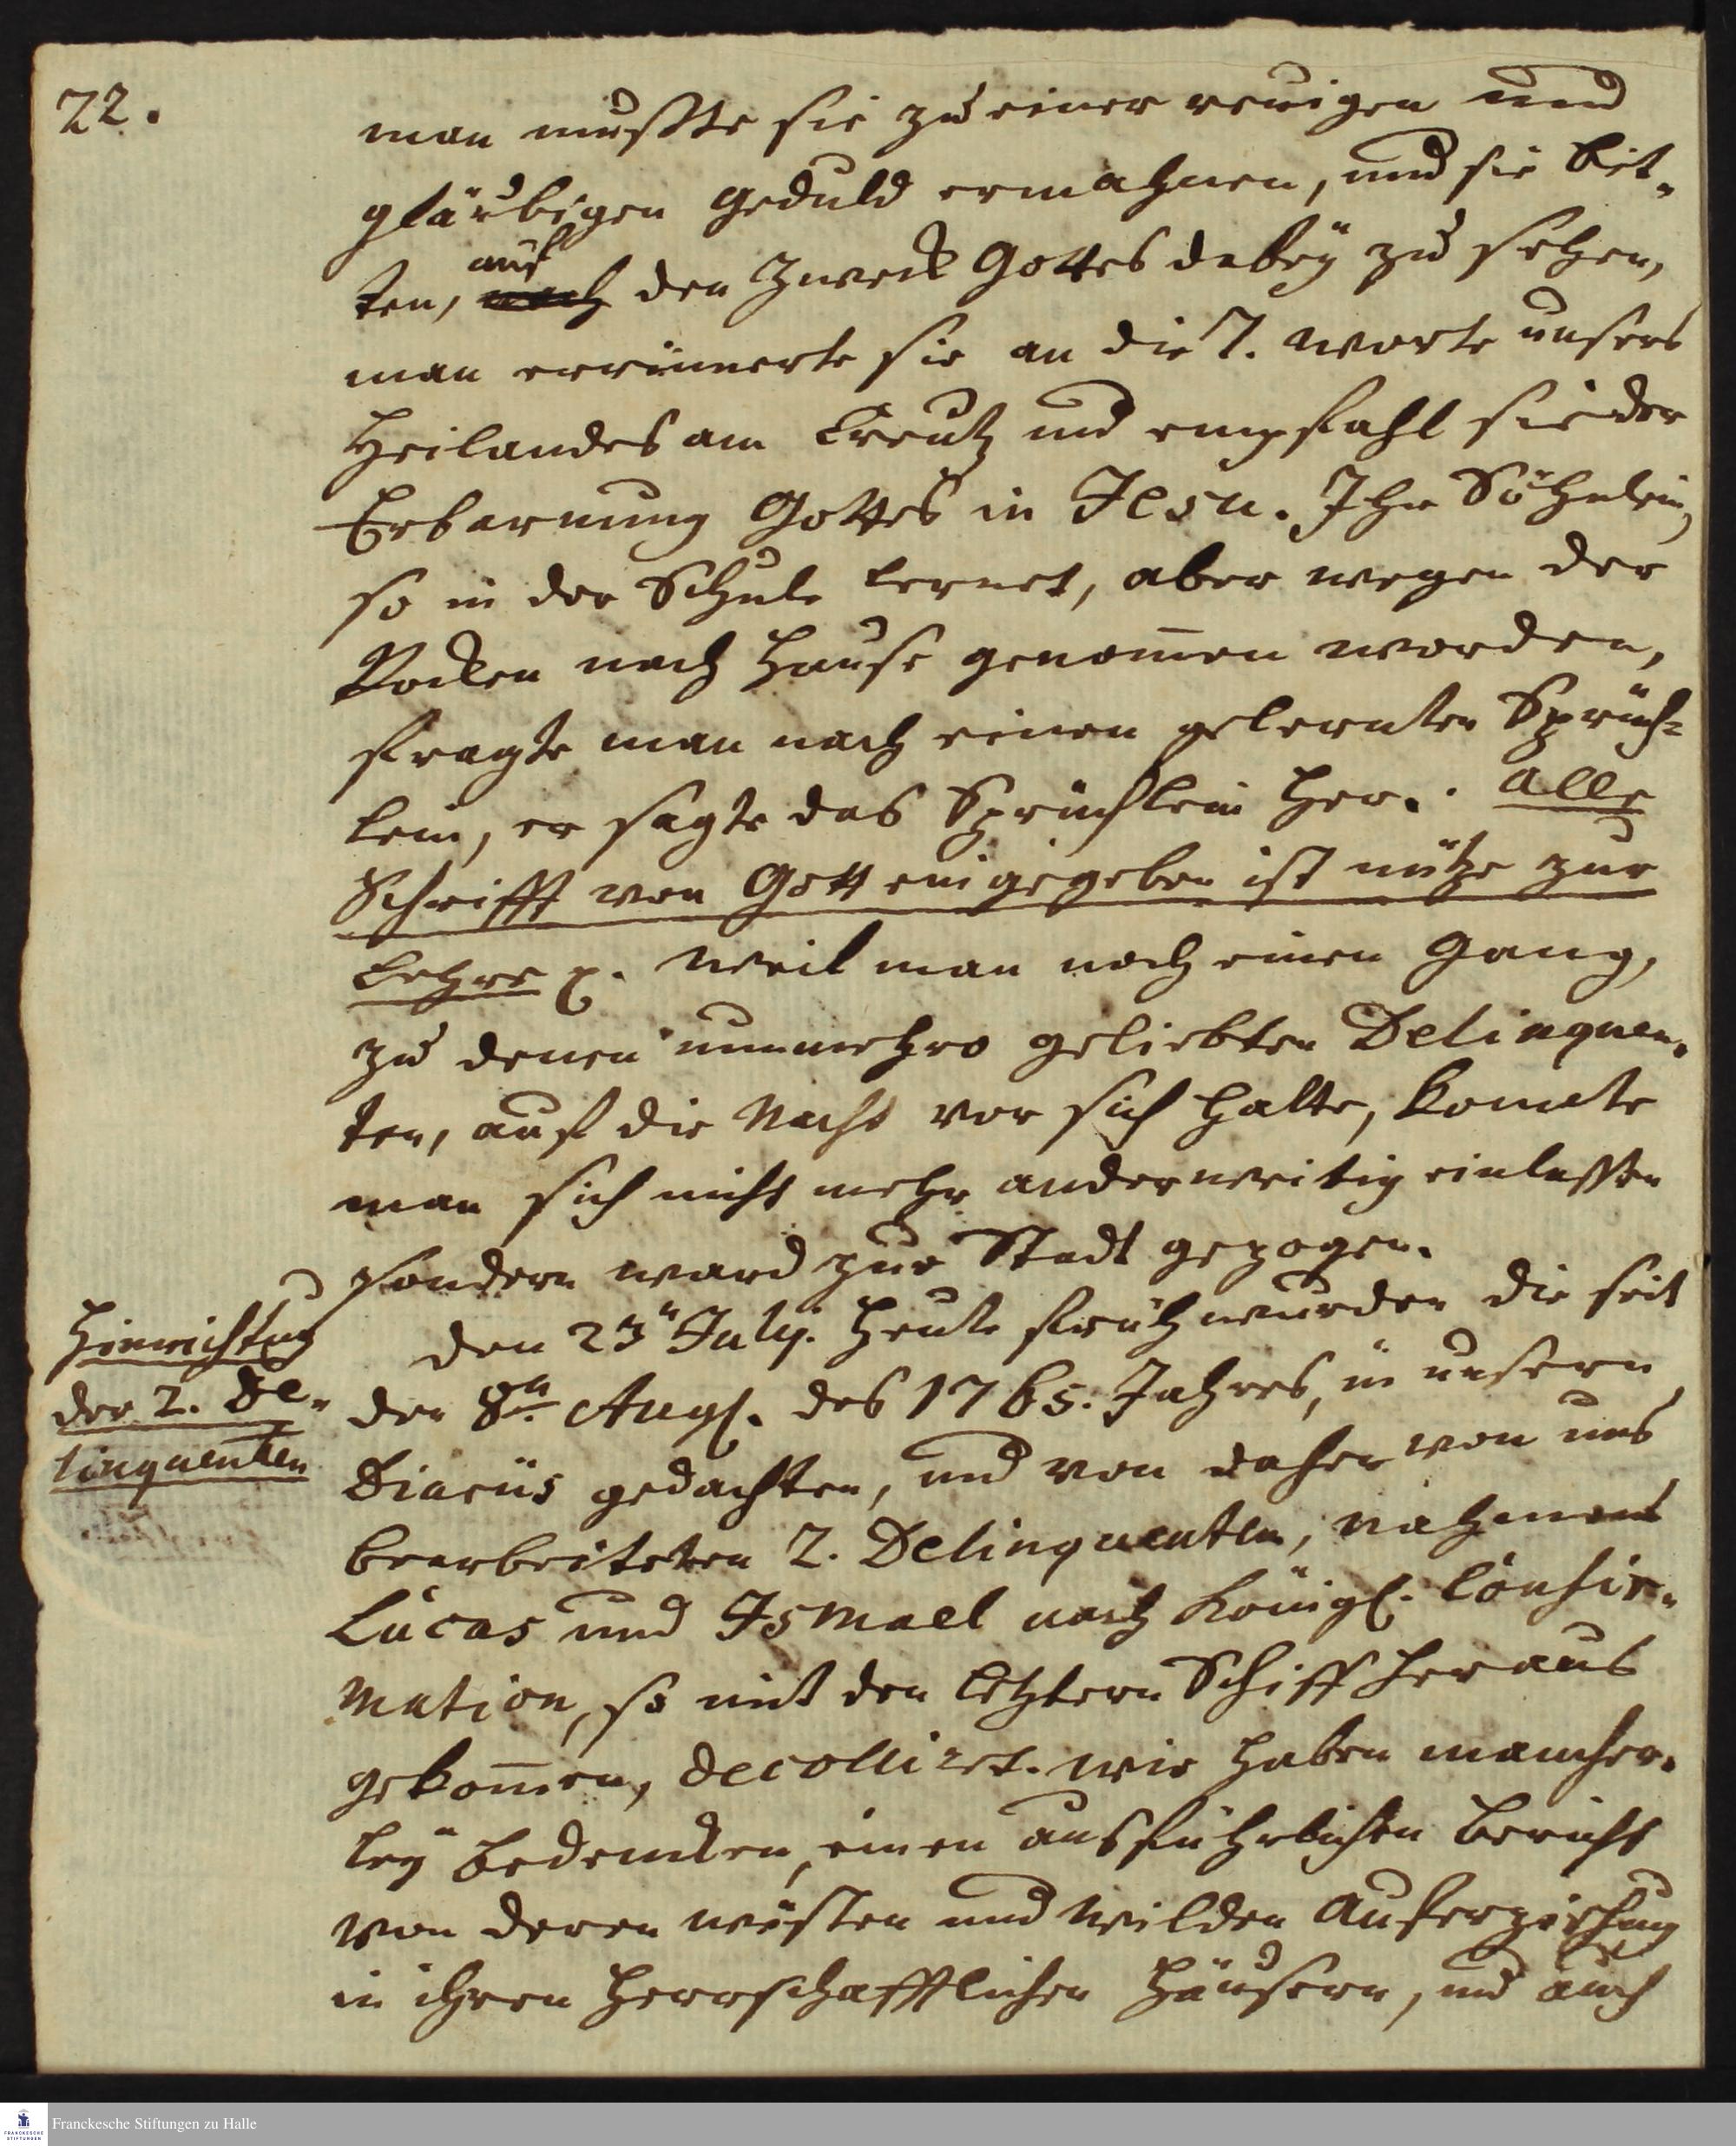 22.
man mußte sie zu einer reuigen und
gläubigen Geduld ermahnen, und sie bit„
ten, auf nach den Zweck Gottes dabey zu sehen,
man errinnerte sie an die 7. Worte unsers
Heilandes am Creutz und empfahl sie der
Erbarmung Gottes in Jesu. Ihr Söhnlein,
so in der Schule lernet, aber wegen der
Pocken nach Hause genom̅en worden,
fragte man nach einen gelernten Sprüch=
lein, er sagte das Sprüchlein her.: Alle
Schrifft von Gott eingegeben ist nütze zur
Lehre p. Weil man noch einen Gang,
zu denen nunmehro geliebten Delinquen„
ten, auf die Nacht vor sich hatte, konnte
man sich nicht mehr anderweitig einlassen
sondern ward zur Stadt gezogen.
Hinrichtug
der 2. De„
linquenten
den 23n July. Heute früh wurden die seit
den 8n Augs. des 1765. Jahres, in unsern
Diariis gedachten, und von daher von uns
bearbeiteten 2. Delinquenten, nahmens
Lucas und Ismael nach Königl. Confir„
mation, so mit den letztern Schiff heraus
gekom̅en, decolliret. Wir haben mancher„
ley Bedencken, einen ausführlichen Bericht
von deren wüsten und wilden Auferziehung
in ihren Herrschafftlichen Häusern, und auch
Franckesche Stiftungen zu Halle
FRANCKESCHE
STIFTUNGEN